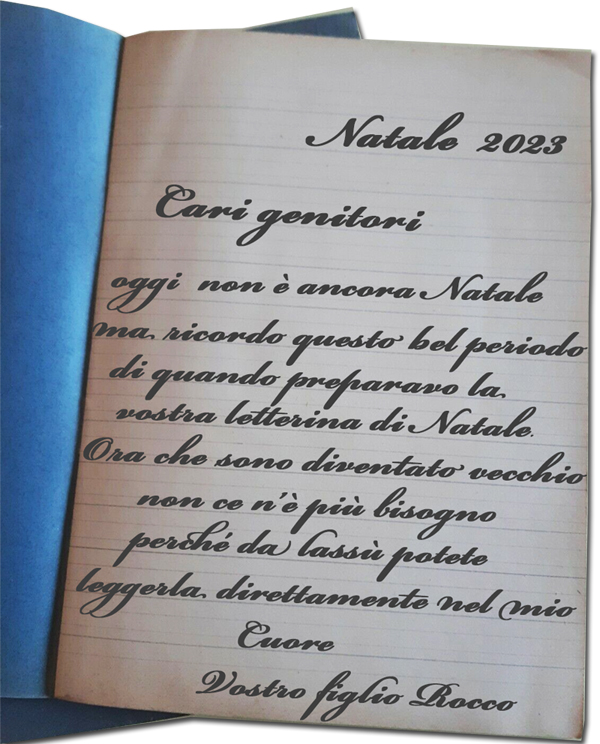 Natale 2023
Cari genitori
oggi non è ancora Natale
ma ricordo questo bel periodo
di quando preparavo la
vostra letterina di Natale.
Ora che sono diventato vecchio
non ce n'è più bisogno
perché da lassù potete
leggerla direttamente nel mio
Cuore
Vostro figlio Rocco